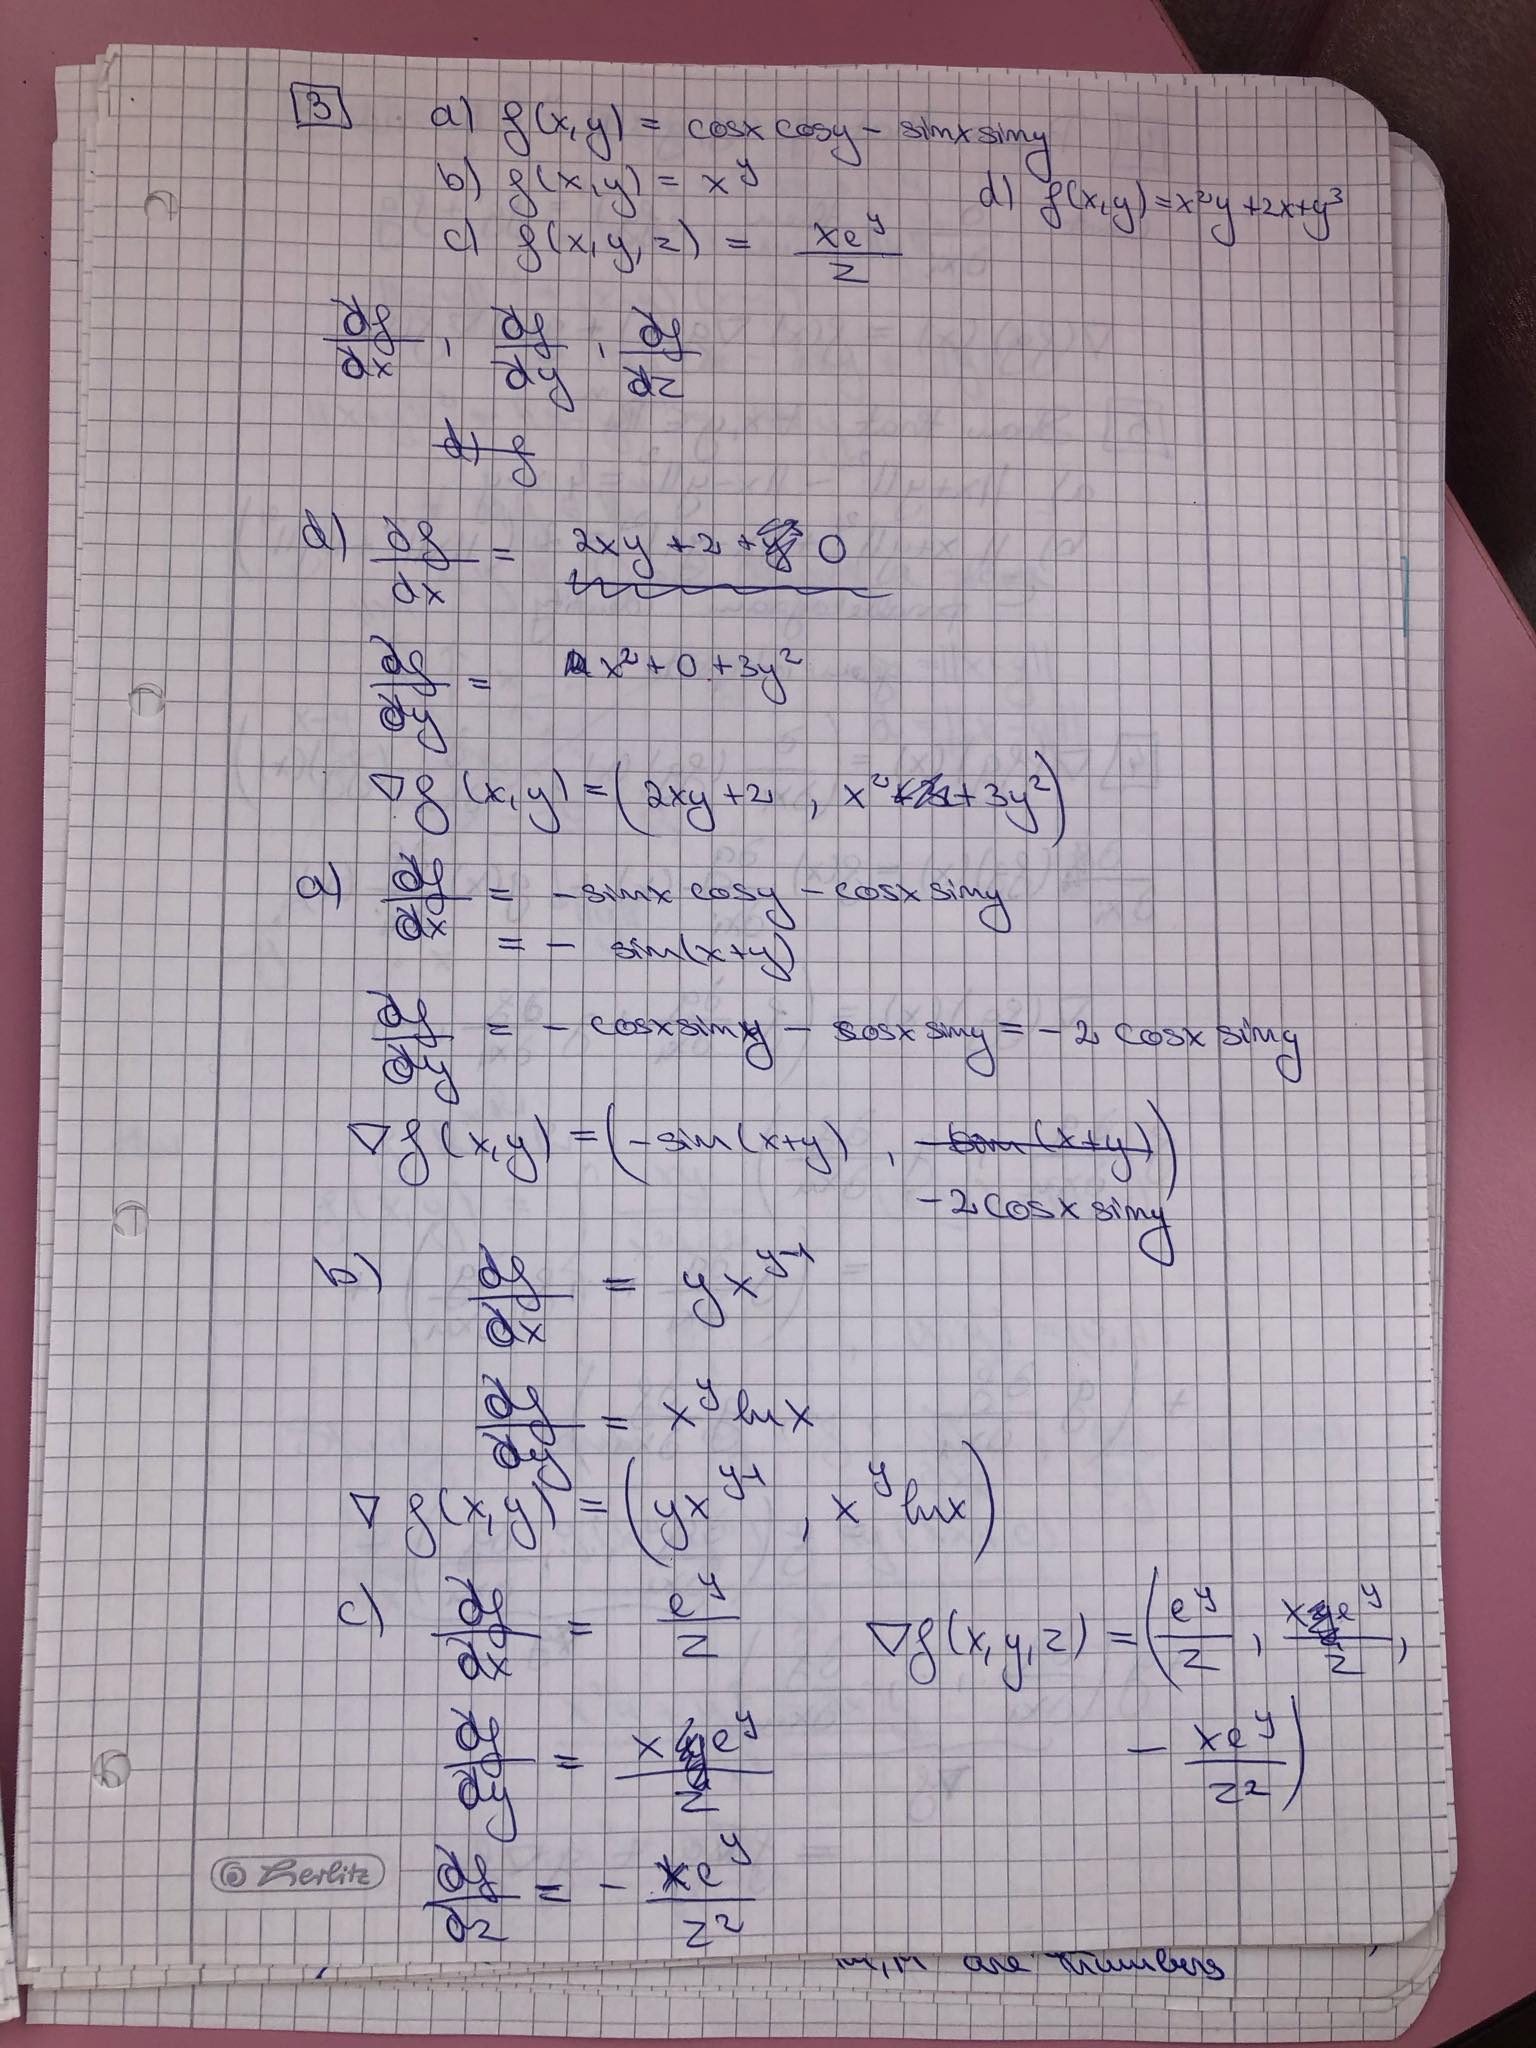 3 a) f(x,y) = cosx cosy - sinx siny
b) f(x,y) = x^y
d) f(x,y) = x²y + 2x + y³
c) f(x,y,z) = xe^y / z
∂f/∂x , ∂f/∂y , ∂f/∂z
d) f
d) ∂f/∂x = 2xy + 2 + 0
∂f/∂y = x² + 0 + 3y²
∇f(x,y) = (2xy + 2 , x² + 3y²)
a) ∂f/∂x = - sinx cosy - cosx siny
= - sin(x+y)
∂f/∂y = - cosx siny - cosx siny = - 2 cosx siny
∇f(x,y) = (- sin(x+y) , - sin(x+y))
- 2 cosx siny
b) ∂f/∂x = yx^(y-1)
∂f/∂y = x^y ln x
∇f(x,y) = (yx^(y-1) , x^y ln x)
c) ∂f/∂x = e^y / z
∇f(x,y,z) = (e^y / z , xe^y / z ,
- xe^y / z²)
∂f/∂y = xe^y / z
∂f/∂z = - xe^y / z²
Herlitz
are numbers